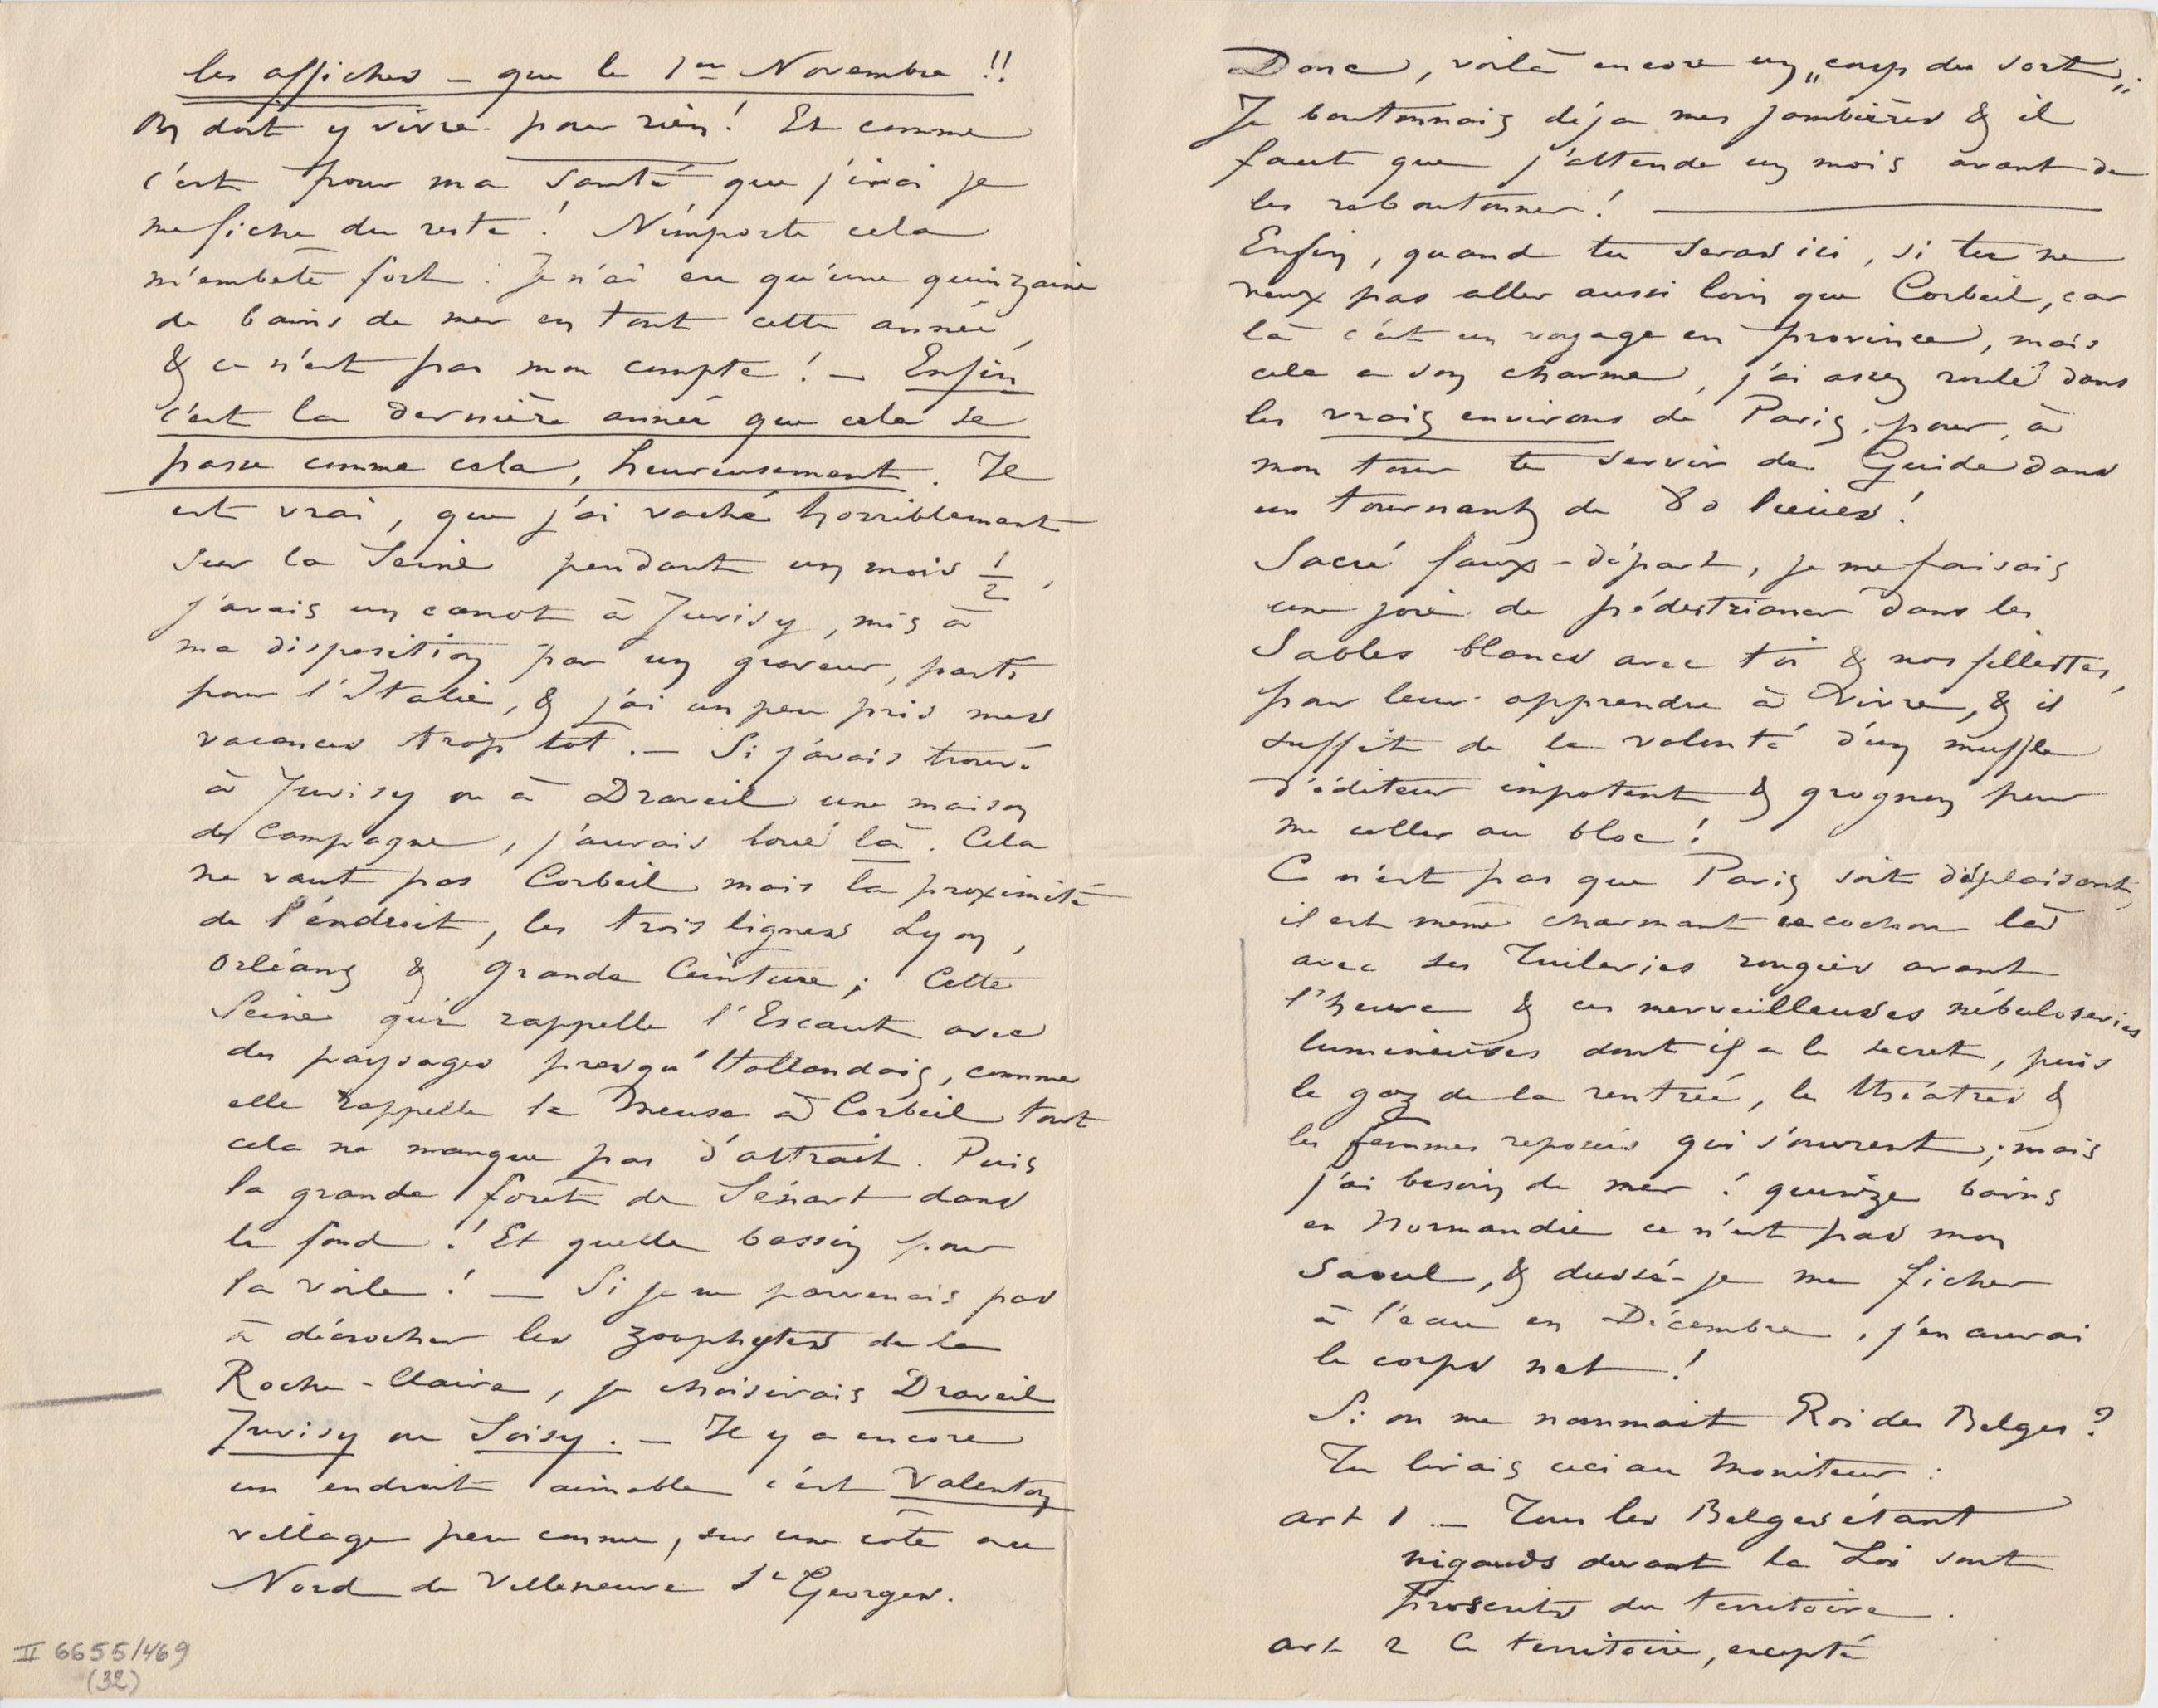 les affiches – que le 1er Novembre !!
On doit y vivre pour rien ! Et comme
c'est pour ma santé que j'irai je
me fiche du reste ! N'importe cela
m'embête fort. Je n'ai eu qu'une quinzaine
de bains de mer en tout cette année,
& ce n'est pas mon compte ! – Enfin
c'est la dernière année que cela se
passe comme cela, heureusement. Il
est vrai, que j'ai vaché horriblement
sur la Seine pendant un mois 1/2,
j'avais un canot à Juvisy, mis à
ma disposition par un graveur, parti
pour l'Italie, & j'ai un peu pris mes
vacances trop tôt. – Si j'avais trouvé
à Juvisy ou à Draveil une maison
de campagne, j'aurais loué là. Cela
ne vaut pas Corbeil mais la proximité
de l'endroit, les trois lignes Lyon,
Orléans & Grande Ceinture ; Cette
Seine qui rappelle l'Escaut avec
des paysages presqu'Hollandais, comme
elle rappelle la Meuse à Corbeil tout
cela ne manque pas d'attrait. Puis
la grande forêt de Sénart dans
le fond ! Et quelle bassin pour
la voile ! – Si je ne parvenais pas
à décrocher les zoophytes de la
Roche-Claire, je choisirais Draveil
Juvisy ou Soisy. – Il y a encore
un endroit aimable c'est Valenton
village peu connu, sur une côte au
Nord de Villeneuve St Georges.
II 6655/469
(32)
Donc, voilà encore un „coup du sort„.
Je boutonnais déja mes jambières & il
faut que j'attende un mois avant de
les reboutonner !
Enfin, quand tu seras ici, si tu ne
veux pas aller aussi loin que Corbeil, car
là c'est un voyage en province, mais
cela a son charme, j'ai assez roulé dans
les vrais environs de Paris, pour, à
mon tour te servir de Guide dans
un tournant de 80 lieues !
Sacré faux-départ, je me faisais
une joie de pédestrianer dans les
Sables blancs avec toi & nos fillettes,
pour leur apprendre à vivre, & il
suffit de la volonté d'un muffle
d'éditeur impotent & grognon pour
me coller au bloc !
Ce n'est pas que Paris soit déplaisant,
il est même charmant ce cochon là
avec ses Tuileries rougies avant
l'heure & ces merveilleuses nébuloseries
lumineuses dont il a le secret, puis
le gaz de la rentrée, les théâtres &
les femmes reposées qui s'ouvrent ; mais
j'ai besoin de mer ! quinze bains
en Normandie ce n'est pas mon
saoul, & dussé-je me ficher
à l'eau en Décembre, j'en aurai
le corps net !
Si on me nommait Roi des Belges ?
Tu lirais ceci au Moniteur :
art 1 – Tous les Belges étant
nigauds devant la Loi sont
proscrits du territoire.
art 2 Ce territoire, excepté